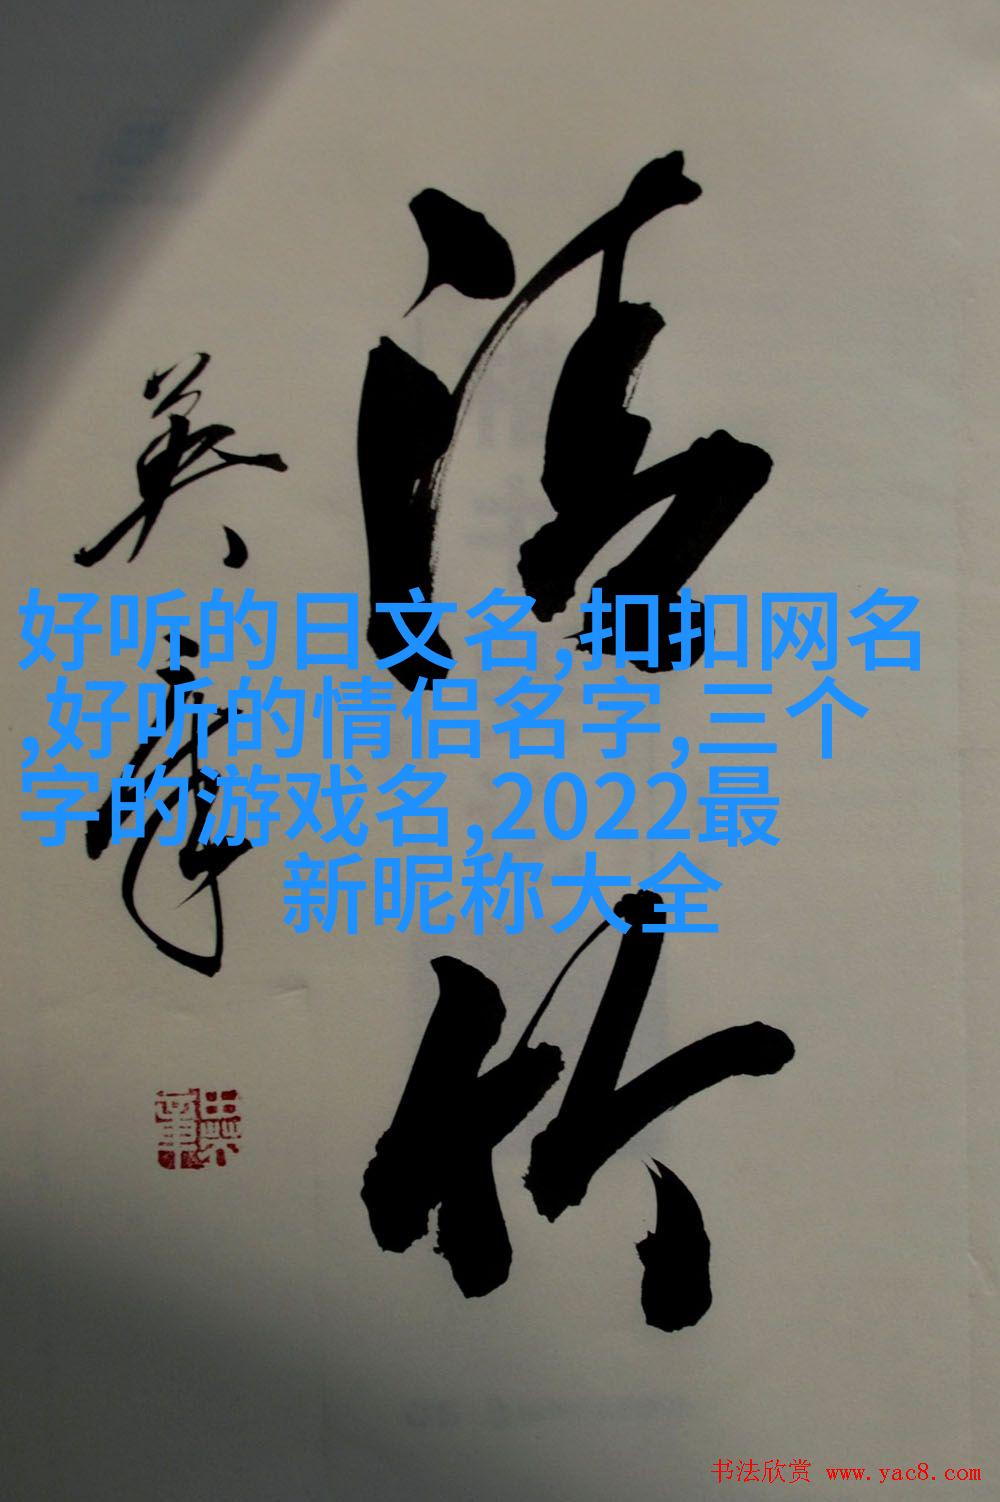 竹
英章
田英章
好听的日文名,扣扣网名
,好听的情侣名字,三个
字的游戏名,2022最
新昵称大全
书法欣赏 www.yac8.com